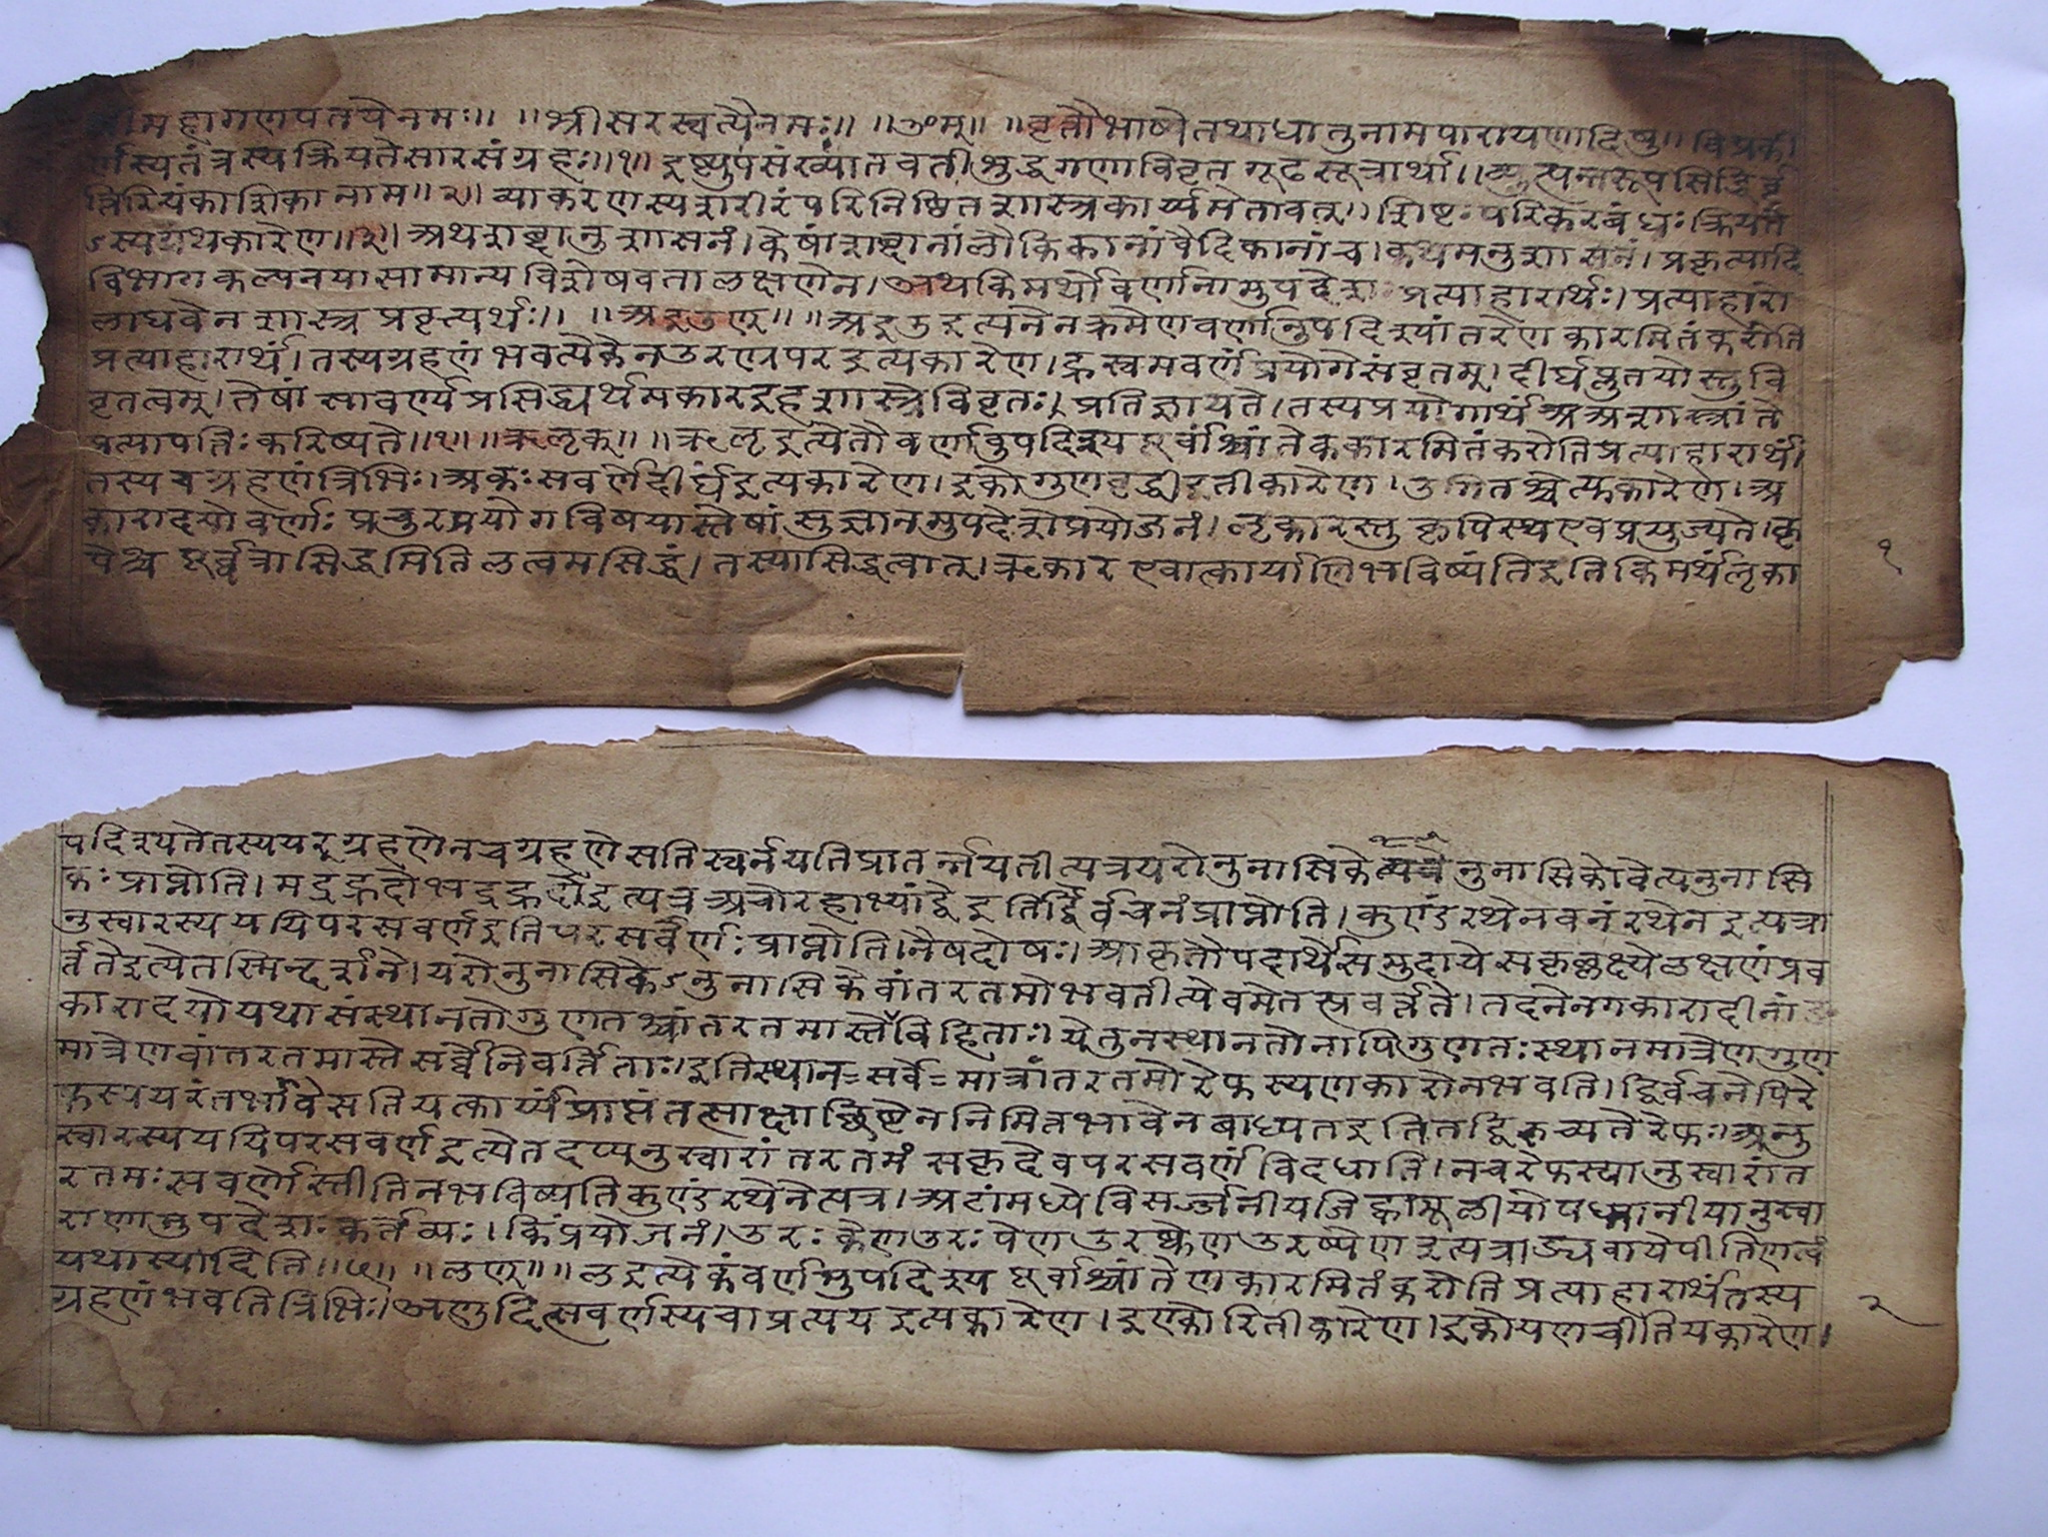 श्रीमहागणपतयेनमः॥ ॥श्रीसरस्वत्यैनमः॥ ॥ॐम्॥ ॥वृत्तौभाष्येतथाधातुनामपारायणादिषु॥ विप्रकी
र्णस्यतंत्रस्यक्रियतेसारसंग्रहः॥१॥ इष्ट्युपसंख्यातवतीशुद्धगणाविवृतगूढसूत्रार्था॥व्युत्पन्नरूपसिद्धिर्वृ
त्तिरियंकाशिकानाम॥२॥ व्याकरणस्यशरीरंपरिनिष्ठितशास्त्रकार्य्यमेतावत्॥ शिष्टःपरिकरबंधःक्रियते
ऽस्यग्रंथकारेण॥३॥ अथशब्दानुशासनं। केषांशब्दानांलौकिकानांवैदिकानांच। कथमनुशासनं। प्रकृत्यादि
विभागकल्पनयासामान्यविशेषवतालक्षणेन। अथकिमर्थोवर्णानामुपदेशः प्रत्याहारार्थः। प्रत्याहारो
लाघवेनशास्त्रप्रवृत्त्यर्थः॥ ॥अइउण्॥ ॥अइउइत्यनेनक्रमेणवर्णानुपदिश्यांतेणकारमितंकरोति
प्रत्याहारार्थं। तस्यग्रहणंभवत्येकेनउरण्रपरइत्यकारेण। ह्रस्वमवर्णंप्रयोगेसंवृतम्। दीर्घप्लुतयोस्तुवि
वृतत्वम्। तेषांसावर्ण्यप्रसिद्ध्यर्थमकारइहशास्त्रेविवृतः। प्रतिज्ञायते। तस्यप्रयोगार्थंअअशास्त्रांते
प्रत्यापत्तिःकरिष्यते॥१॥ ॥ऋलृक्॥ ॥ऋलृइत्येतौवर्णावुपदिश्यपूर्वांश्चांतेककारमितंकरोतिप्रत्याहारार्थं।
तस्यचग्रहणंत्रिभिः। अकःसवर्णेदीर्घइत्यकारेण। इकोगुणवृद्धीइतीकारेण। उगितश्चेत्युकारेण। अ
कारादयोवर्णाःप्रचुरप्रयोगविषयास्तेषांसुज्ञानमुपदेशेप्रयोजनं। लृकारस्तुकॢपिस्थएवप्रयुज्यते। कॢ
पेश्चपूर्व्वत्रासिद्धमितिलत्वमसिद्धं। तस्यासिद्धत्वात्। ऋकारएवाच्कार्याणिभविष्यंतिइतिकिमर्थंलृका
१
पदिश्यतेतस्ययर्ग्रहणेनचग्रहणेसतिस्वर्नयतिप्रातर्न्नयतीत्यत्रयरोनुनासिकेनुनासिकोवेत्यनुनासि
कःप्राप्नोति। मद्रह्रदोभद्रह्रदोइत्यत्रअचोरहाभ्यांद्वेइतिर्द्विर्वचनंप्राप्नोति। कुण्डंरथेनवनंरथेनइत्यत्रा
नुस्वारस्यययिपरसवर्णइतिपरसवर्णःप्राप्नोति। नैषदोषः। आकृतौपदार्थेसमुदायेसकृल्लक्ष्येलक्षणंप्रव
र्त्ततेइत्येतस्मिन्दर्शने। यरोनुनासिकेऽनुनासिकोवांतरतमोभवतीत्येवमेतत्प्रवर्त्तते। तदनेनगकारादीनांङ
कारादयोयथासंस्थानतोगुणतश्चांतरतमास्तेविहिताः। येतुनस्थानतोनापिगुणतःस्थानमात्रेणगुण
मात्रेणवांतरतमास्तेसर्व्वेनिवर्त्तिताः। इतिस्थान=सर्वे=मात्रांतरतमोरेफस्यणकारोनभवति। द्विर्वचनेपिरे
फस्ययरंतर्भावेसतियत्कार्य्यंप्राप्तंतत्साक्षाच्छिष्टेननिमित्तभावेनबाध्यतइतितद्विरुच्यतेरेफः। अनु
स्वारस्यययिपरसवर्णइत्येतदप्यनुस्वारांतरतमंसकृदेवपरसवर्णंविदधाति। नचरेफस्यानुस्वारांत
रतमःसवर्णोस्तीतिनभविष्यतिकुण्डंरथेनेत्यत्र। अटांमध्येविसर्ज्जनीयजिह्वामूलीयोपध्मानीयानुस्वा
राणामुपदेशःकर्त्तव्यः। किंप्रयोजनं। उरःकेणउरःपेणउरxकेणउरxपेणइत्यत्राड्व्यवायेपीतिणत्वं
यथास्यादिति॥५॥ ॥लण्॥ ॥लइत्येकंवर्णमुपदिश्यपूर्वांश्चांतेणकारमितंकरोतिप्रत्याहारार्थंतस्य
ग्रहणंभवतित्रिभिः। अणुदित्सवर्णस्यचाप्रत्ययइत्यकारेण। इण्कोरितीकारेण। इकोयणचीतियकारेण।
२